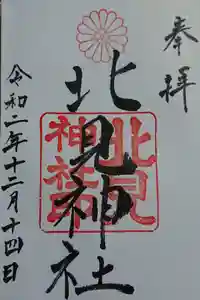 奉拝
北見神社
北見神社印
令和二年十二月十四日